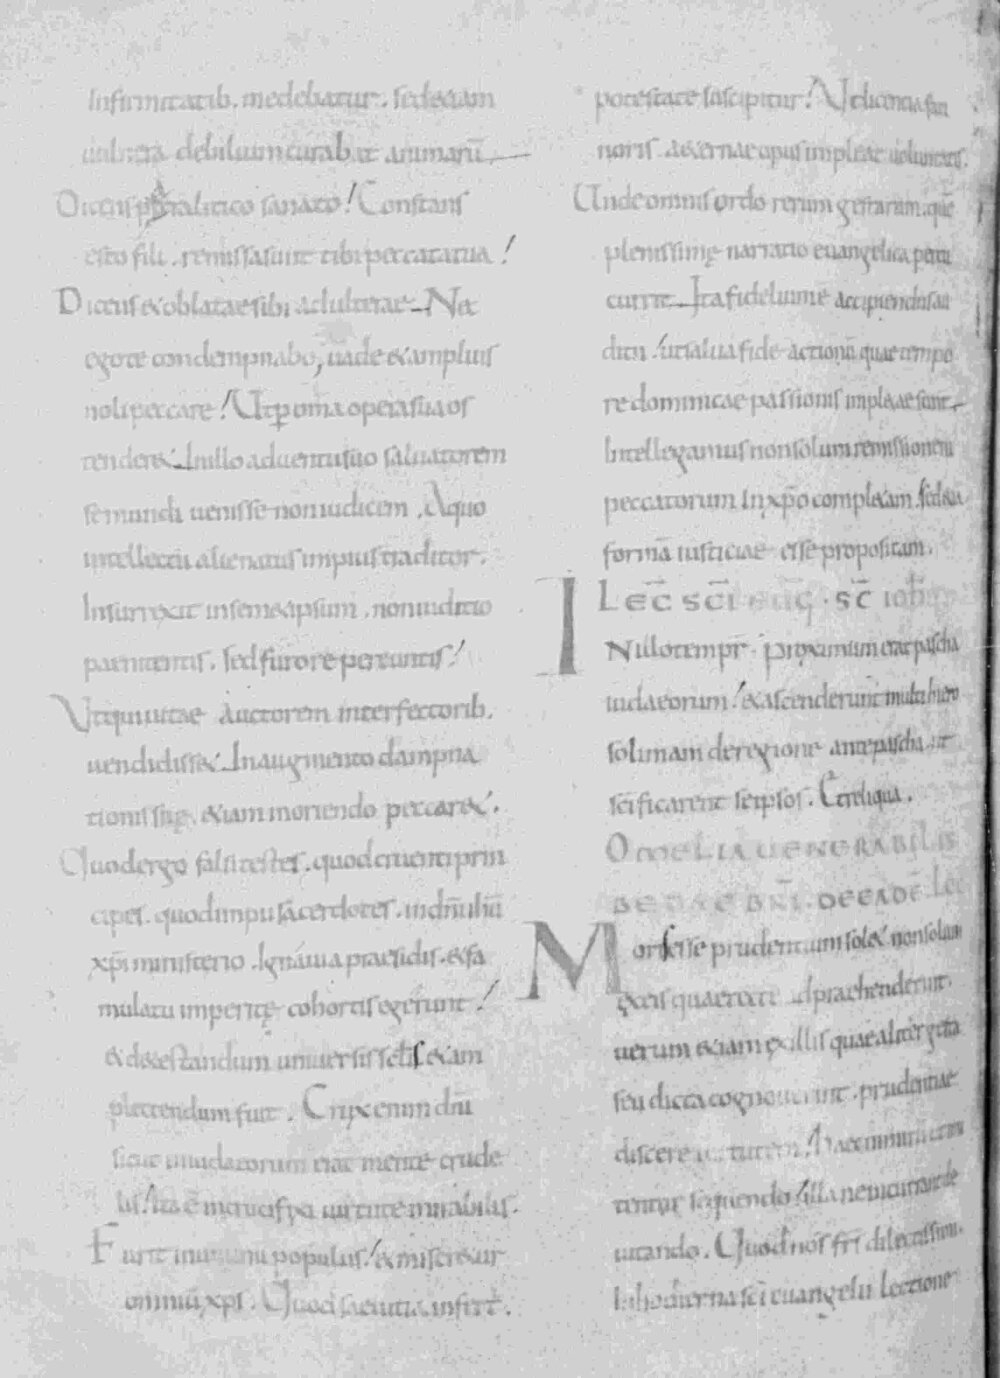 Infirmitatib. medebatur. sedetiam
uulnera debilium curabat animarū
Dicens paralitico sanato! Constans
esto fili. remissa sunt tibi peccata tua!
Dicens et oblatae sibi adulterae Nec
ego te condempnabo, uade et amplius
noli peccare! Ut p omnia opera sua os
tenderet Inillo aduentu suo saluatorem
se mundi uenisse non iudicem. A quo
intellectu alienatus impius traditor.
Insurrexit insemetipsum. non iuditio
paenitentis. sed furore pereuntis!
Ut qui uitae auctorem interfectorib.
uendidisset. In augmento dampna
tionis suę. etiam moriendo peccaret.
Quod ergo falsi testes. quod cruenti prin
cipes. quod impii sacerdotes. in dn̄m ihm̄
xp̄m ministerio. Ignauia praesidis. et fa
mulatu imperitę cohortis egerunt!
et detestandum uniuersis sclis etam
plectendum fuit. Crux enim dn̄i
sicut iniudaeorum erat mente crude
lis! Ita ē in crucifixi uirtute mirabilis.
Furit inunum populus! et miseretur
omniū xp̄s. Quod saeuitia infert.
potestate suscipitur! Ut licentia fu
roris. aeternae opus impleat uoluntatis.
Unde omnis ordo rerum gestarum. quē
plenissimę narratio euangelica percu
currit. Ita fidelium ē accipiendus au
ditu! ut salua fide actionū quae tempo
re dominicae passionis impletae sunt.
Intellegamus non solum remissionem
peccatorum In xp̄o completam. sed etia
formā iusticiae esse propositam.
LEC̄ SC̄I EUG̅. SC̄ ioh̄
INillo tempr̄. proximum erat pascha
iudaeorum! et ascenderunt multi hiero
solimam de regione ante pascha. ut
sc̄ificarent seipsos. Et reliqua.
OMELIA UENERABILIS
BEDAE DEEADĒ. Lec
Mor esse prudentium solet. non solum
ęxeis quae recte adpraehenderint.
uerum etiam ęxillis quae aliter gesta
seu dicta cognouerint. prudentiae
discere uirtutem.
tentur sequendo! illa
uitando. Quod nos fr̄s dilectissimi.
In hodierna sc̄i euangelii lectione